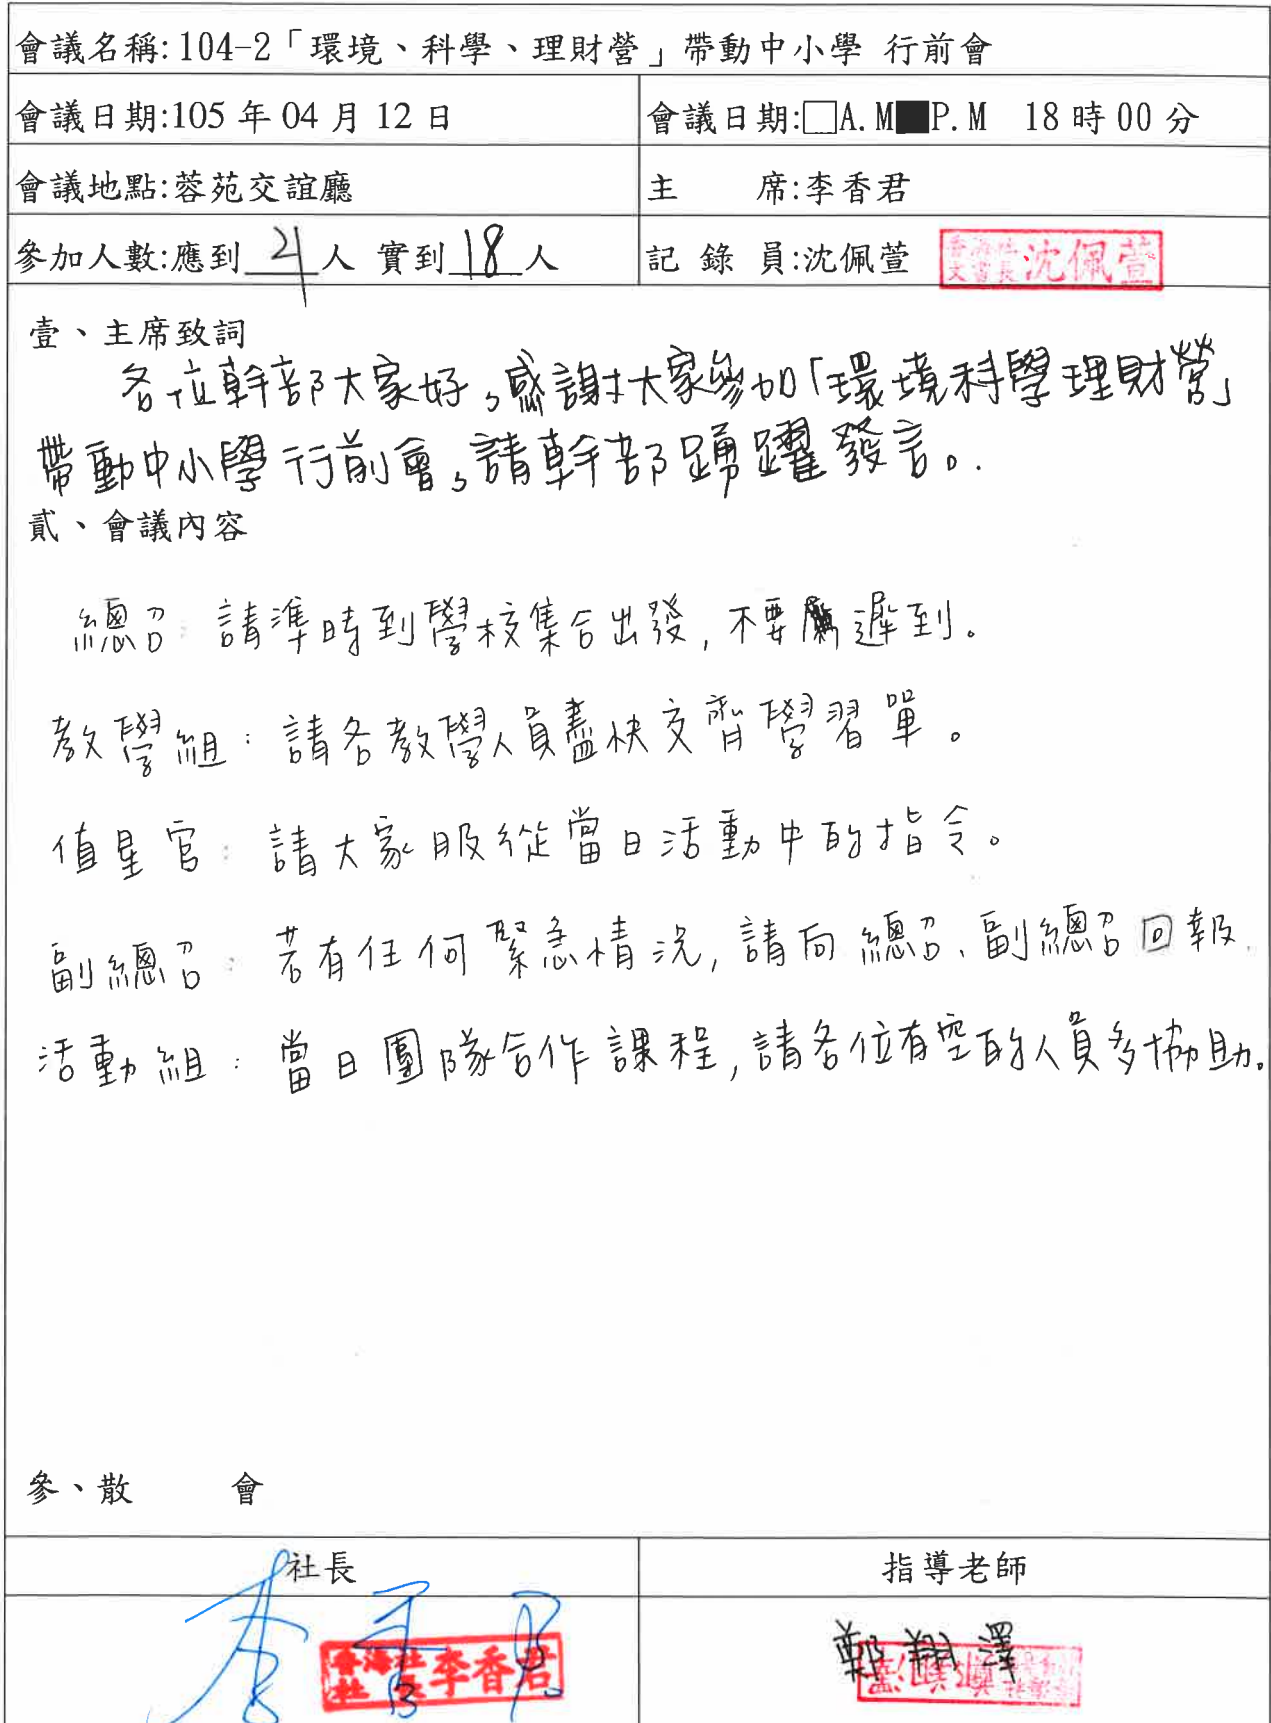 會議名稱:104-2「環境、科學、理財營」帶動中小學 行前會
會議日期:105 年 04 月 12 日
會議日期:□A.M■P.M 18 時 00 分
會議地點:蓉苑交誼廳
主 席:李香君
參加人數:應到 21 人 實到 18 人
記 錄 員:沈佩萱
香海社文書長 沈佩萱
壹、主席致詞
各位幹部大家好,感謝大家參加「環境科學理財營」
帶動中小學行前會,請幹部踴躍發言。
貳、會議內容
總召:請準時到學校集合出發,不要遲到。
教學組:請各教學人員盡快交齊學習單。
值星官:請大家服從當日活動中的指令。
副總召:若有任何緊急情況,請向總召、副總召回報.
活動組:當日團隊合作課程,請各位有空的人員多協助。
參、散 會
社長
指導老師
李香君
香海社社長 李香君
鄭翔澤